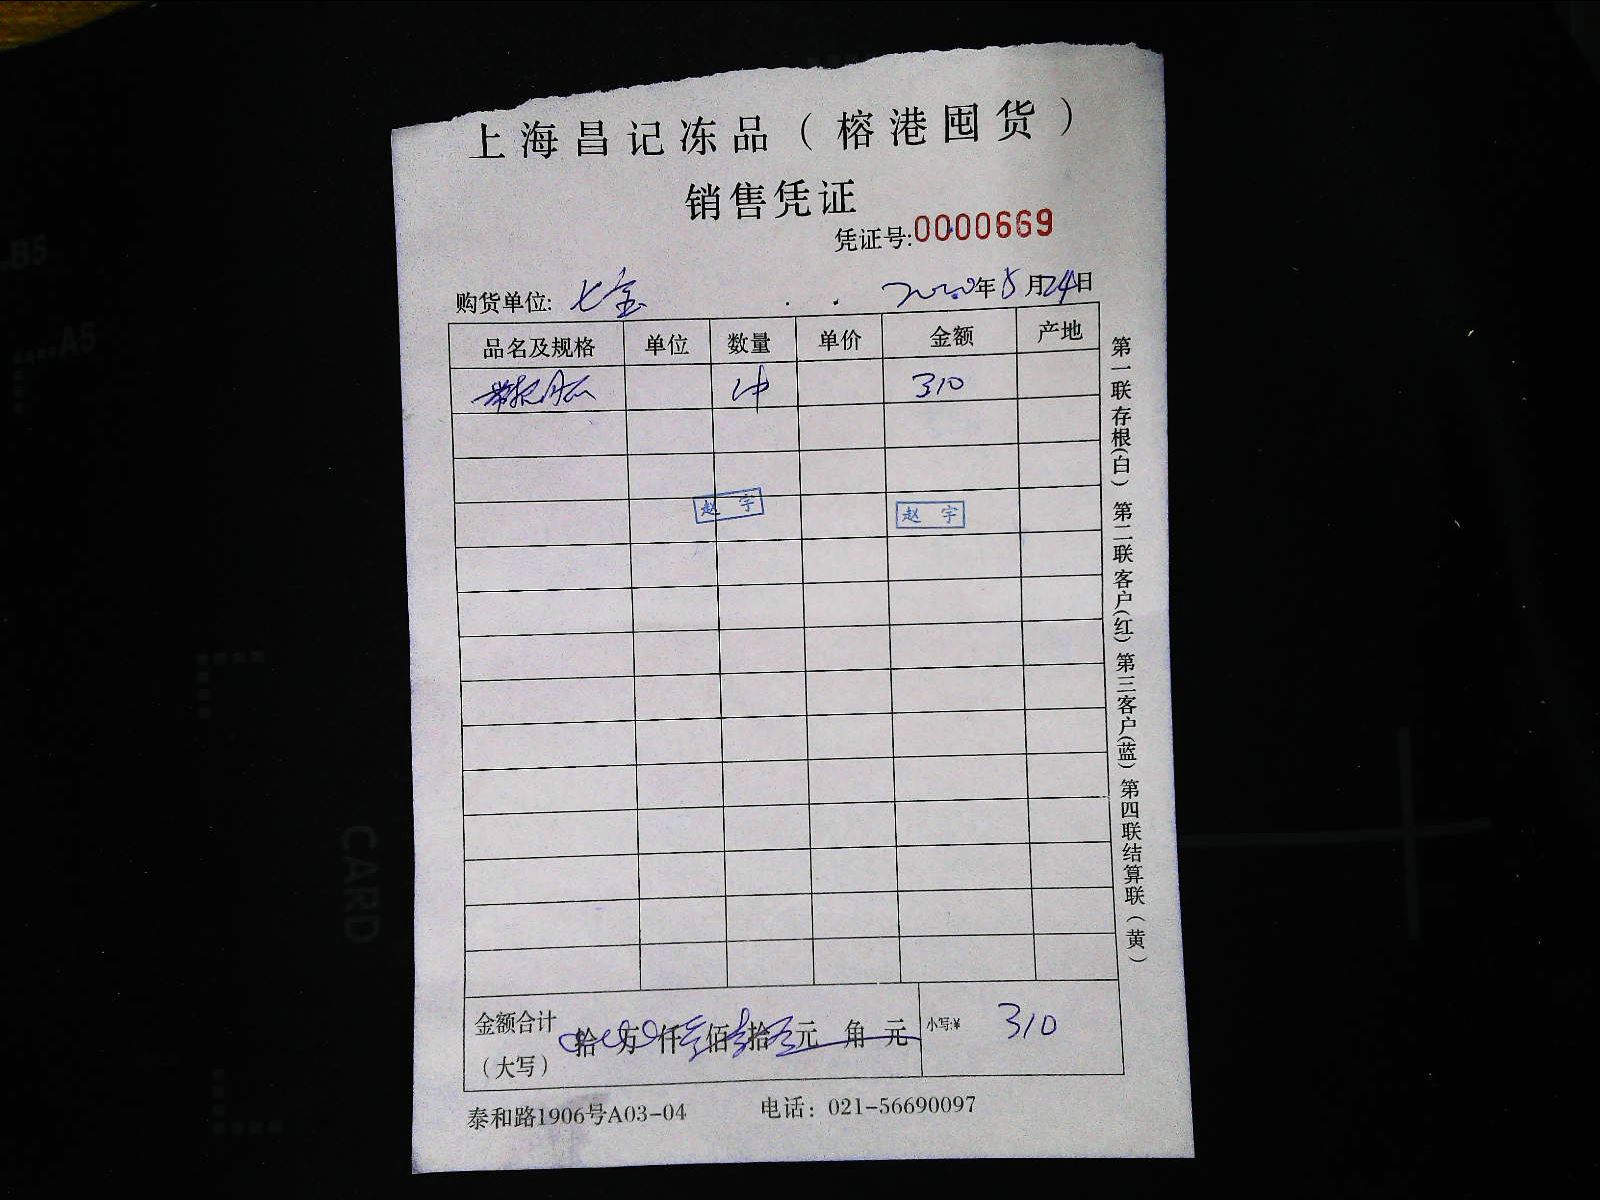 上海昌记冻品（榕港囤货）
销售凭证
凭证号:0000669
购货单位: 七宝 2020年5月24日
品名及规格 单位 数量 单价 金额 产地
310
赵宇 赵宇
金额合计 拾 万 仟 佰 拾 元 角 元 小写:¥ 310
（大写）
泰和路1906号A03-04 电话：021-56690097
第一联存根(白) 第二联客户(红) 第三客户(蓝) 第四联结算联（黄）
.B5
A5
CARD